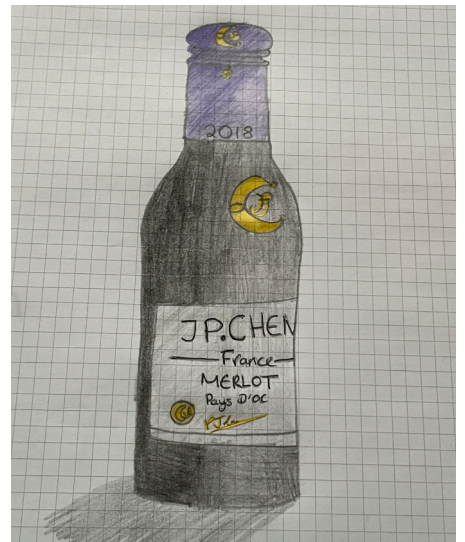 2018
JP.CHEN
France
MERLOT
Pays D'OC